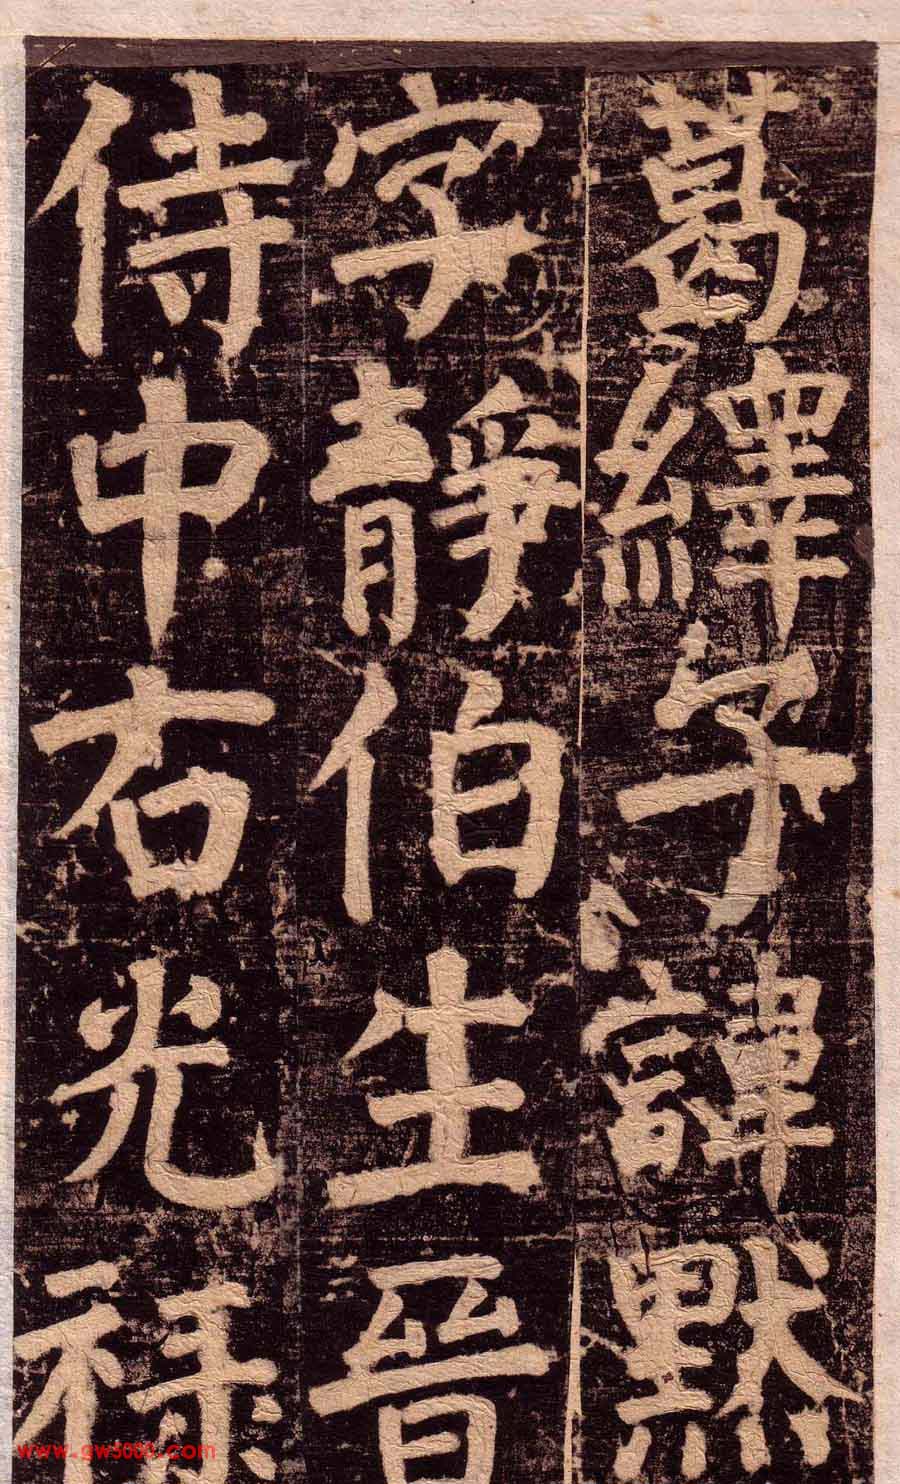 葛繹子諱默
字靜伯生晉
侍中右光祿
www.gw5000.com